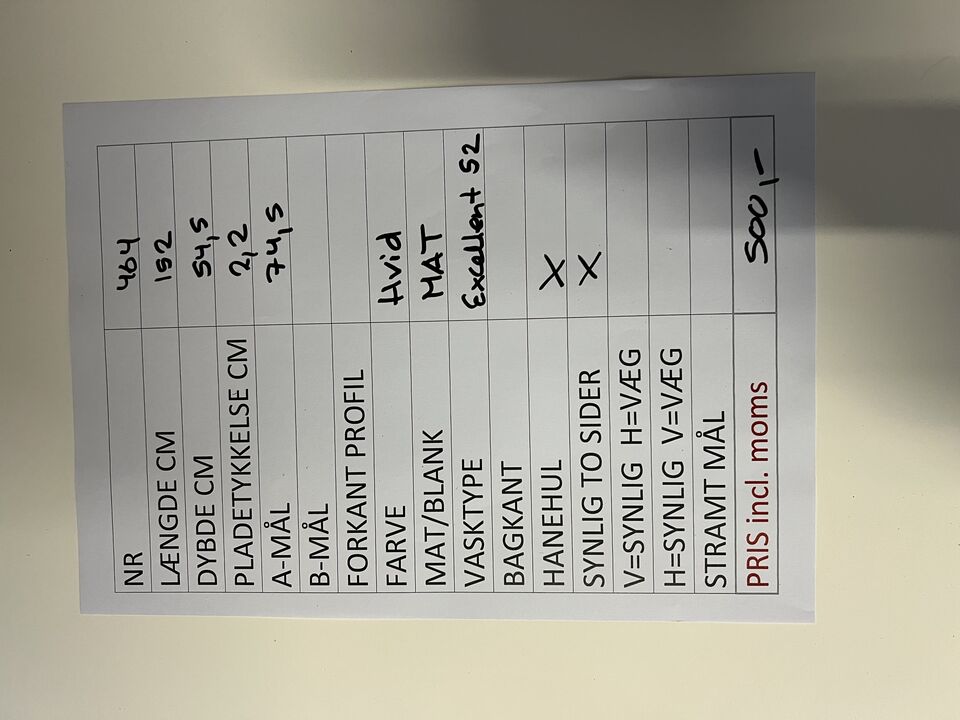 NR 464
LÆNGDE CM 152
DYBDE CM 54,5
PLADETYKKELSE CM 2,2
A-MÅL 74,5
B-MÅL
FORKANT PROFIL
FARVE Hvid
MAT/BLANK MAT
VASKTYPE Excellent 52
BAGKANT
HANEHUL X
SYNLIG TO SIDER X
V=SYNLIG H=VÆG
H=SYNLIG V=VÆG
STRAMT MÅL
PRIS incl. moms 500,-